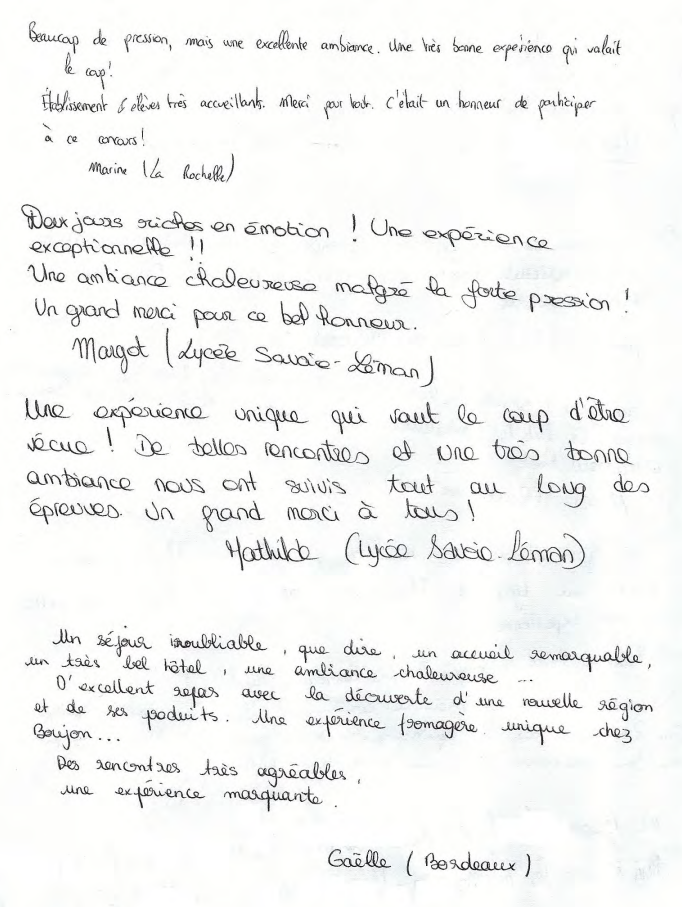 Beaucap de pression, mais une excellente ambiance. Une très bonne expérience qui valait
le coup!
Établissement & élèves très accueillants. Merci pour tout. C'était un honneur de participer
à ce concours!
Marine (La Rochelle)
Deux jours riches en émotion ! Une expérience
exceptionnelle !!
Une ambiance chaleureuse malgré la forte pression !
Un grand merci pour ce bel honneur.
Margot (Lycée Savoie-Léman)
Une expérience unique qui vaut le coup d'être
vécue ! De belles rencontres et une très bonne
ambiance nous ont suivis tout au long des
épreuves. Un grand merci à tous !
Mathilde (Lycée Savoie-Léman)
Un séjour inoubliable, que dire, un accueil remarquable,
un très bel hôtel, une ambiance chaleureuse ...
D'excellent repas avec la découverte d'une nouvelle région
et de ses produits. Une expérience fromagère unique chez
Boujon...
Des rencontres très agréables,
une expérience marquante.
Gaëlle (Bordeaux)